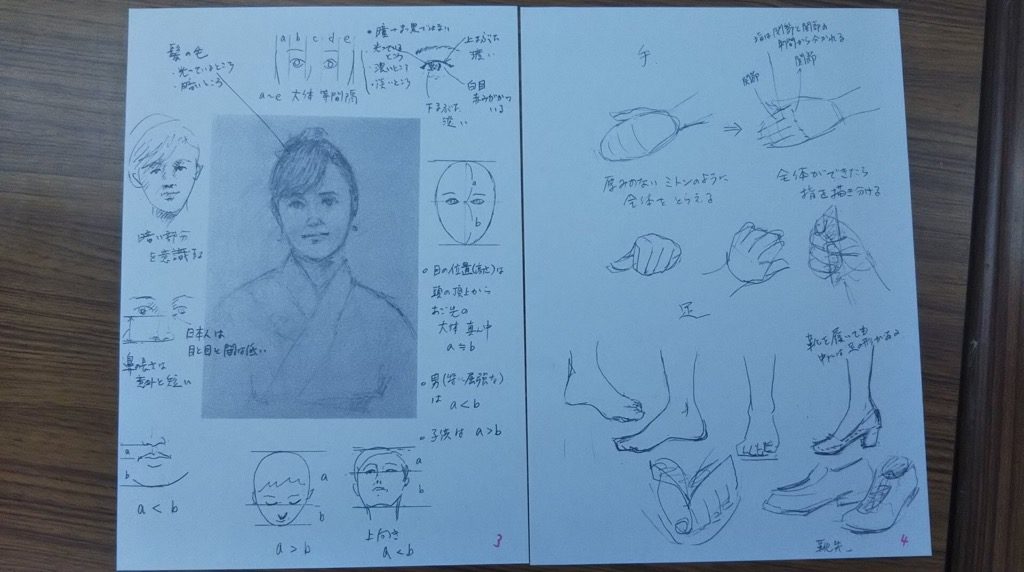 髪の色
・光っているところ
・暗いところ
a b c d e
a〜e 大体 等間隔
・光っている
ところ
・濃いところ
・淡いところ
上まぶたは
濃い
白目
下まぶたは
淡い
暗い部分
を意識する
日本人は
目と目と間は低い
鼻の長さは
意外と短い
a
b
a < b
a
b
a > b
a
b
上向き
a < b
a
b
頭の頂上から
あご先の
大体 真ん中
a ≒ b
は
a < b
子供は a > b
3
手
指は関節と関節の
中間から分かれる
関節
関節
⇒
厚みのない ミトンのように
全体を とらえる
全体ができたら
指を描き分ける
足
靴を履いても
中には 足の形がある
4